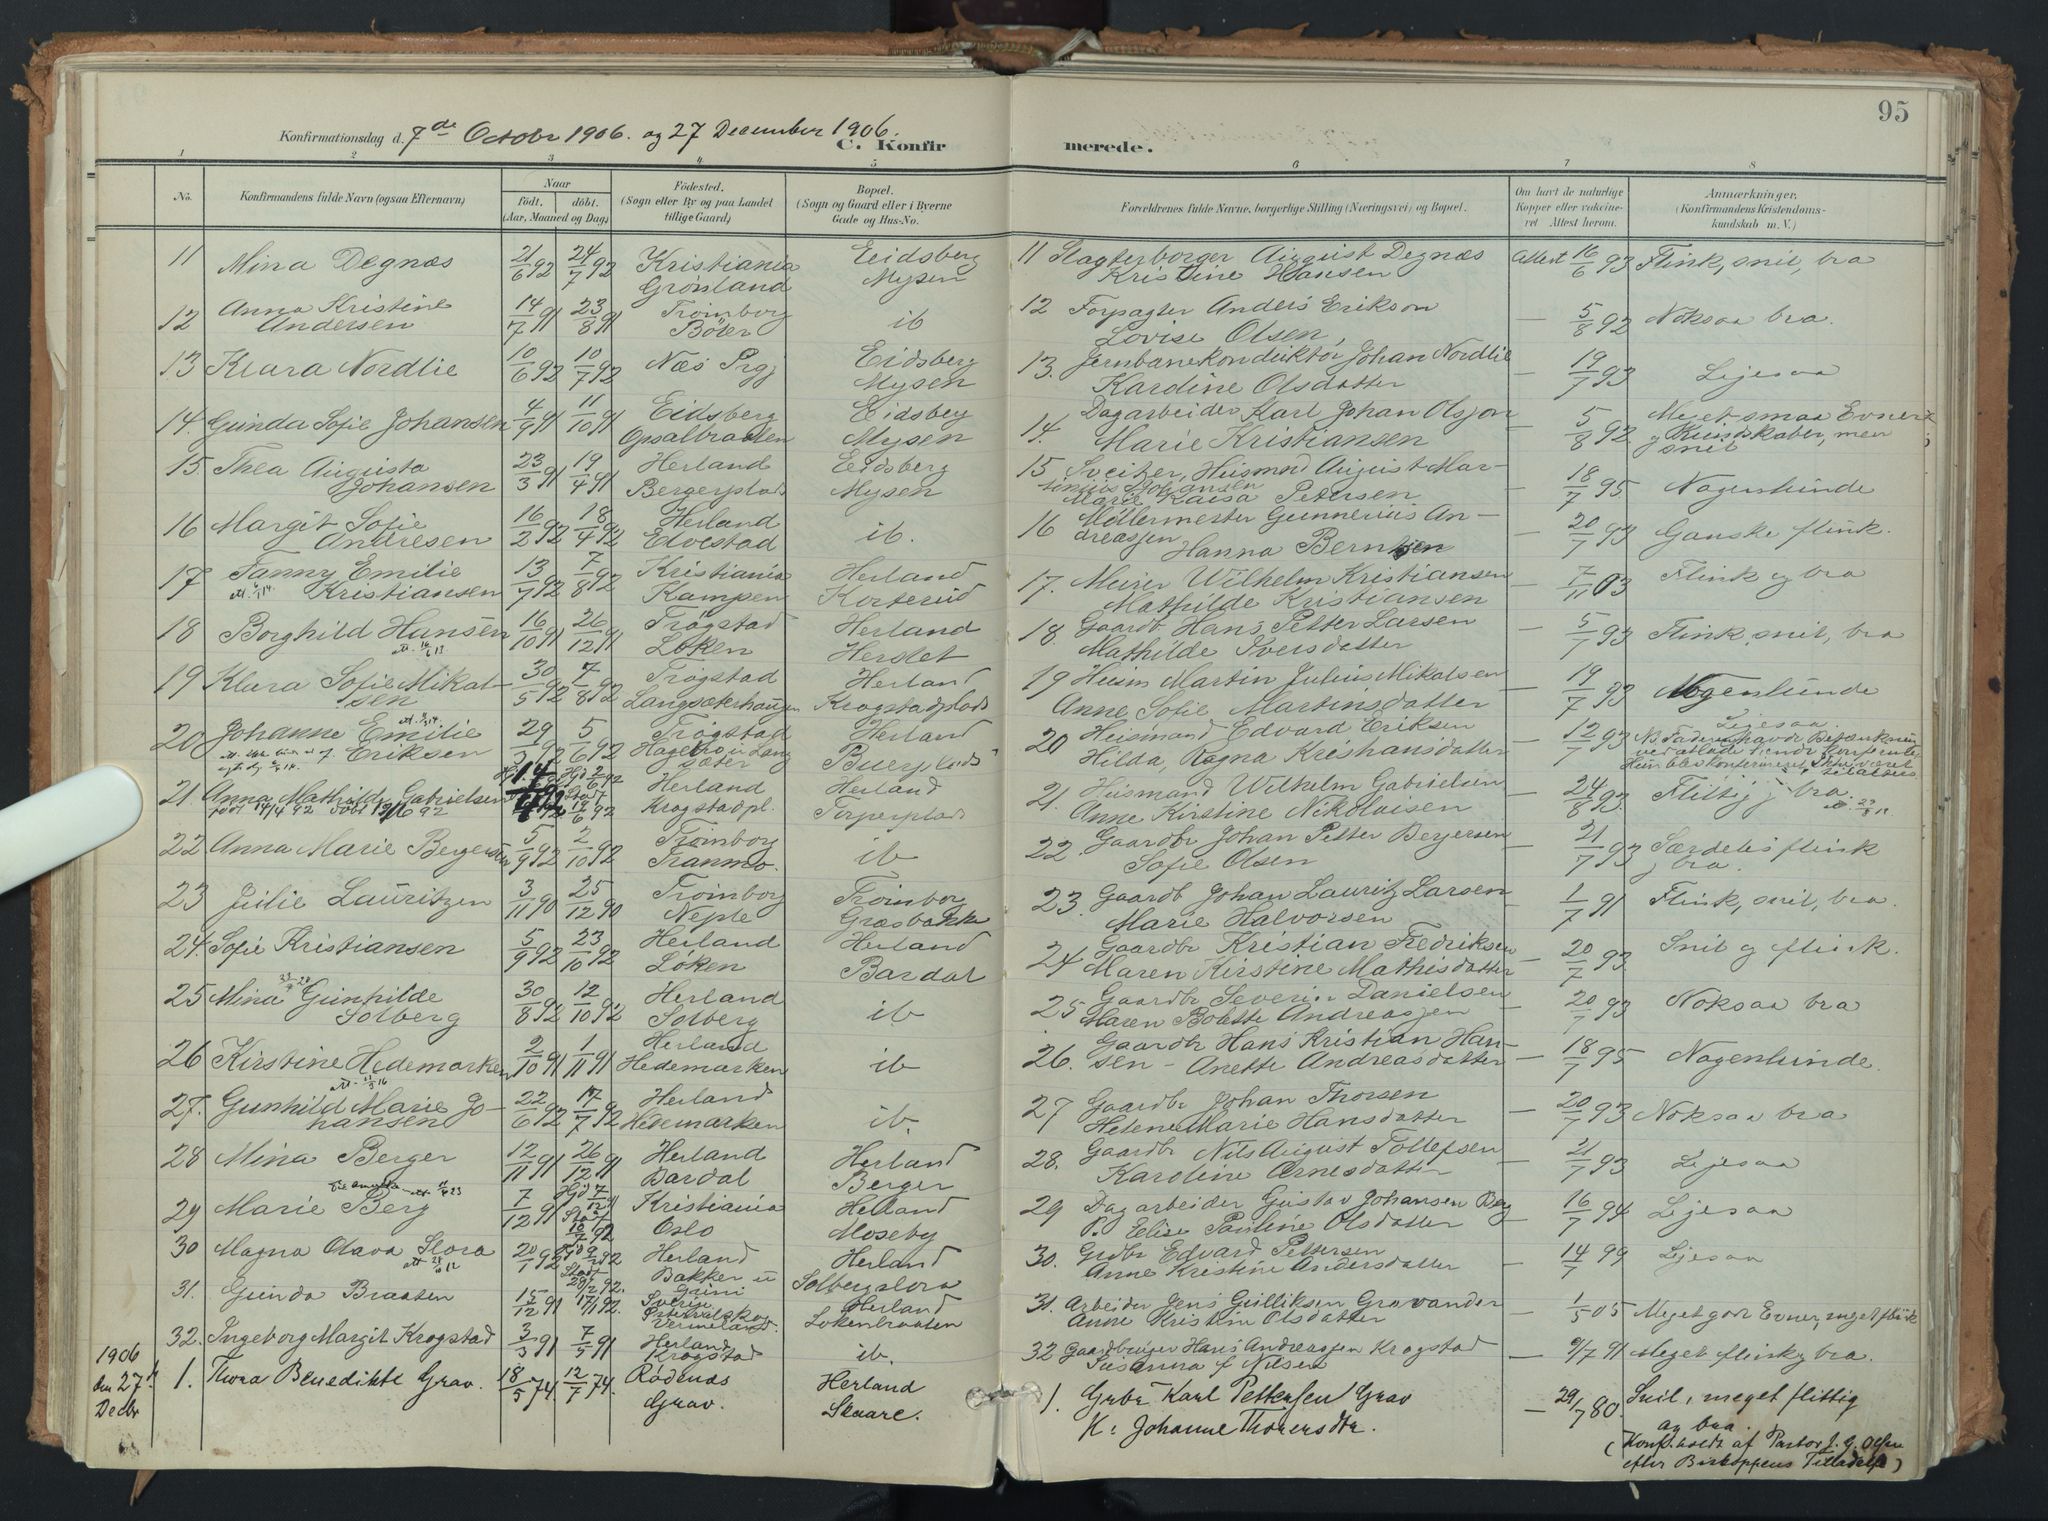 95
Konfirmationsdag d. 7de October 1906. og 27 December 1906.
C. Konfirmerede.
1 2 3 4 5 6 7 8
No.
Konfirmandens fulde Navn (ogsaa Efternavn)
Naar
födt. döbt.
(Aar, Maaned og Dag)
Födested.
(Sogn eller By og paa Landet
tillige Gaard)
Bopæl.
(Sogn og Gaard eller i Byerne
Gade og Hus-No.
Forældrenes fulde Navne, borgerlige Stilling (Næringsvei) og Bopæl.
Om havt de naturlige
Kopper eller vaccine-
ret Attest herom.
Anmærkninger,
(Konfirmandens Kristendoms-
kundskab m. V.)
11 Mina Degnæs 21/6 92 24/7 92 Kristiania Grønland Eidsberg Mysen 11 Slagterborger August Degnæs
Kristine Hansen Attest 16/6 93 Flink, snil, bra
12 Anna Kristine
Andersen 14/7 91 23/8 91 Trømborg Böler ib 12 Forpagter Anders Erikson
Lovise Olsen, — 5/8 92 Noksaa bra.
13 Klara Nordlie 10/6 92 10/7 92 Næs Prgj Eidsberg Mysen 13. Jernbanekonduktør Johan Nordlie
Kardine Olsdatter — 19/7 93 Lejesaa
14. Gunda Sofie Johansen 4/9 91 11/10 91 Eidsberg Opsalbraaten Eidsberg Mysen 14. Dagarbeider Karl Johan Olsen
Marie Kristiansen — 5/8 92 Meget smaa Evner
og Kundskaber, men
snil
15. Thea Augusta
Johansen 23/3 91 19/4 91 Herland Bergerplads Eidsberg Mysen 15 Sveitzer, Husmand August Mar-
tinius Johansen
Marie Kaisa Petersen — 18/7 95. Nogenlunde
16 Margit Sofie
Andresen 16/2 92 18/4 92 Herland Edvestad ib. 16 Möllermester Gunnerius An-
dreassen
Hanna Berntsen — 20/7 93 Ganske flink.
17 Fanny Emilie
Kristiansen 13/7 92 7/8 92 Kristiania Kampen Herland Korterud 17. Murer Wilhelm Kristiansen
Mathilde Kristiansen — 7/11 03 Flink og bra
18 Borghild Hansen 16/10 91 26/12 91 Trøgstad Løken Herland Herslet 18. Gaardb Hans Petter Larsen
Mathilde Iversdatter — 5/7 93 Flink, snil, bra
19 Klara Sofie Mikal-
sen 30/5 92 7/8 92 Trøgstad Langsæterhaugen Herland Krogstadplads 19 Husm Martin Julius Mikalsen
Anne Sofie Martinsdatter — 19/7 93 Nogenlunde
20 Johanne Emilie
Eriksen 29/2 92 5/6 92 Trøgstad Hagebro u Lang
sæter Herland Buerplads 20 Husmand Edvard Eriksen
Hilda, Ragna Kristiansdatter — 12/7 93 Lejesaa.
21. Anna Mathilde Gabrielsen
født 14/4 92 Døbt 19/6 92 Herland Krogstadpl. Herland Torperplads 21. Husmand Wilhelm Gabrielsen
Anne Kirstine Nikolaisen — 24/8 92. Flittig, bra.
22 Anna Marie Bergersen 5/9 92 2/10 92 Trømborg Tranmo. ib 22. Gaardbr Johan Petter Bergersen
Sofie Olsen — 21/7 93 Særdeles flink
og bra.
23 Julie Lauritzen 3/11 90 25/12 90 Trømborg Neple Trømborg Græsbakke 23. Gaardb Johan Lauritz Larsen
Marie Halvorsen — 1/7 91 Flink, snil, bra.
24. Sofie Kristiansen 5/9 92 23/10 92 Herland Løken Herland Bardal 24 Gaardbr Kristian Fredriksen
Maren Kirstine Mathisdatter — 20/7 93. Snil og flink.
25 Mina Gunhilde
Solberg 30/8 92 12/10 92 Herland Solberg ib 25 Gaardbr Severin Danielsen
Maren Bolette Andreassen — 20/7 93 Noksaa bra
26 Kirstine Hedemarken 2/10 91 1/11 91 Herland Hedemarken ib 26. Gaardb Hans Kristian Han-
sen — Anette Andreasdatter — 18/7 95 Nogenlunde.
27. Gunhild Marie Jo-
hansen 22/6 92 17/7 92 Herland Hedemarken ib. 27 Gaardbr Johan Thorsen
Helene Marie Hansdatter — 20/7 93 Noksaa bra
28 Mina Berger 12/11 91 26/12 91 Herland Bardal Herland Berger 28. Gaardbr Nils August Tollefsen
Karoline Arnesdatter — 21/7 93 Lejesaa
29 Marie Berg 7/12 91 Kristiania Oslo Herland Moseby 29 Dagarbeider Gustav Johansen Berg
P. Elise Pauline Olsdatter — 16/7 94 Lejesaa
30 Magna Olava Slora 20/1 92 Herland Bakker u Grini Herland Solbergslora 30. Grdbr Edvard Pettersen
Anne Kristine Andersdatter — 14/7 99 Lejesaa
31. Gunda Braaten 15/12 91 17/1 92. Sverige Østervalskog Vermeland. Herland Løkenbraaten 31. Arbeider Jens Gulliksen Gravander
Anne Kristin Olsdatter — 1/5 05 Meget gode Evner, meget flink
32. Ingeborg Margit Krogstad 3/3 91 7/5 91 Herland Krogstad ib. 32 Gaardbruger Hans Andreassen Krogstad
Susanna f Nilsen — 9/7 91 Meget flink og bra.
1906
den 27de
Decbr
1. Thora Benedikte Grav. 18/5 74. 12/7 74. Rødenæs Grav. Herland Skaare. 1. Grbr Karl Pettersen Grav
K: Johanne Thoresdtr. — 29/7 80. Snil, meget flittig
og bra.
(Konf. holdt af Pastor J. G. Olsen
efter Biskoppens Tilladelse)